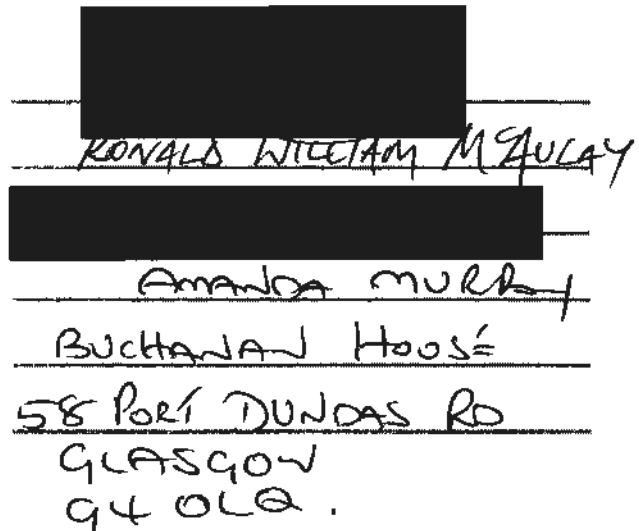 RONALD WILLIAM McAULAY
AMANDA MURRAY
BUCHANAN HOUSE
58 PORT DUNDAS RD
GLASGOW
G4 0LQ.